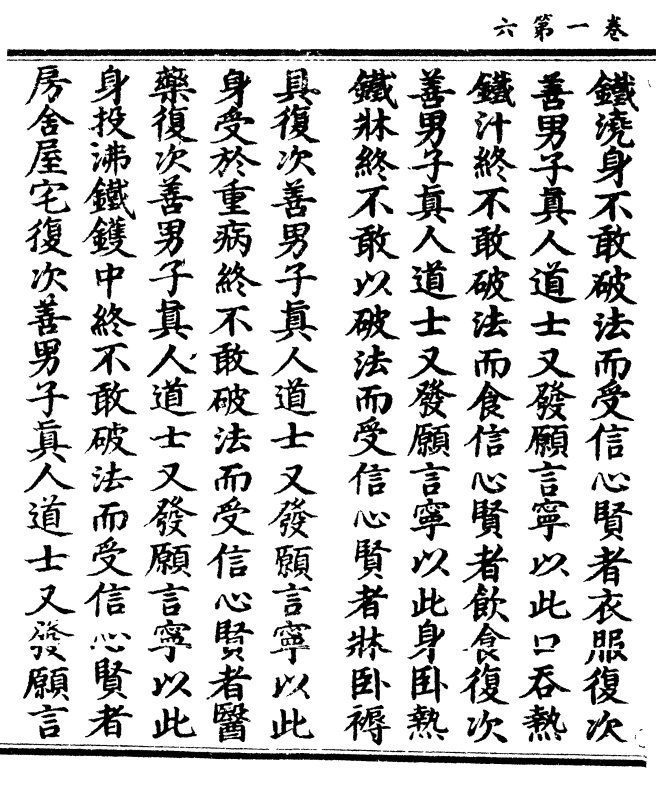 卷一第六
鐵澆身不敢破法而受信心賢者衣服復次
善男子真人道士又發願言寧以此口吞熱
鐵汁終不敢破法而食信心賢者飲食復次
善男子眞人道士又發願言寧以此身卧熱
鐵牀終不敢以破法而受信心賢者牀卧褥
具復次善男子眞人道士又發願言寧以此
身受於重病終不敢破法而受信心賢者醫
藥復次善男子真人道士又發願言寧以此
身投沸鐵鑊中終不敢破法而受信心賢者
房舍屋宅復次善男子眞人道士又發願言